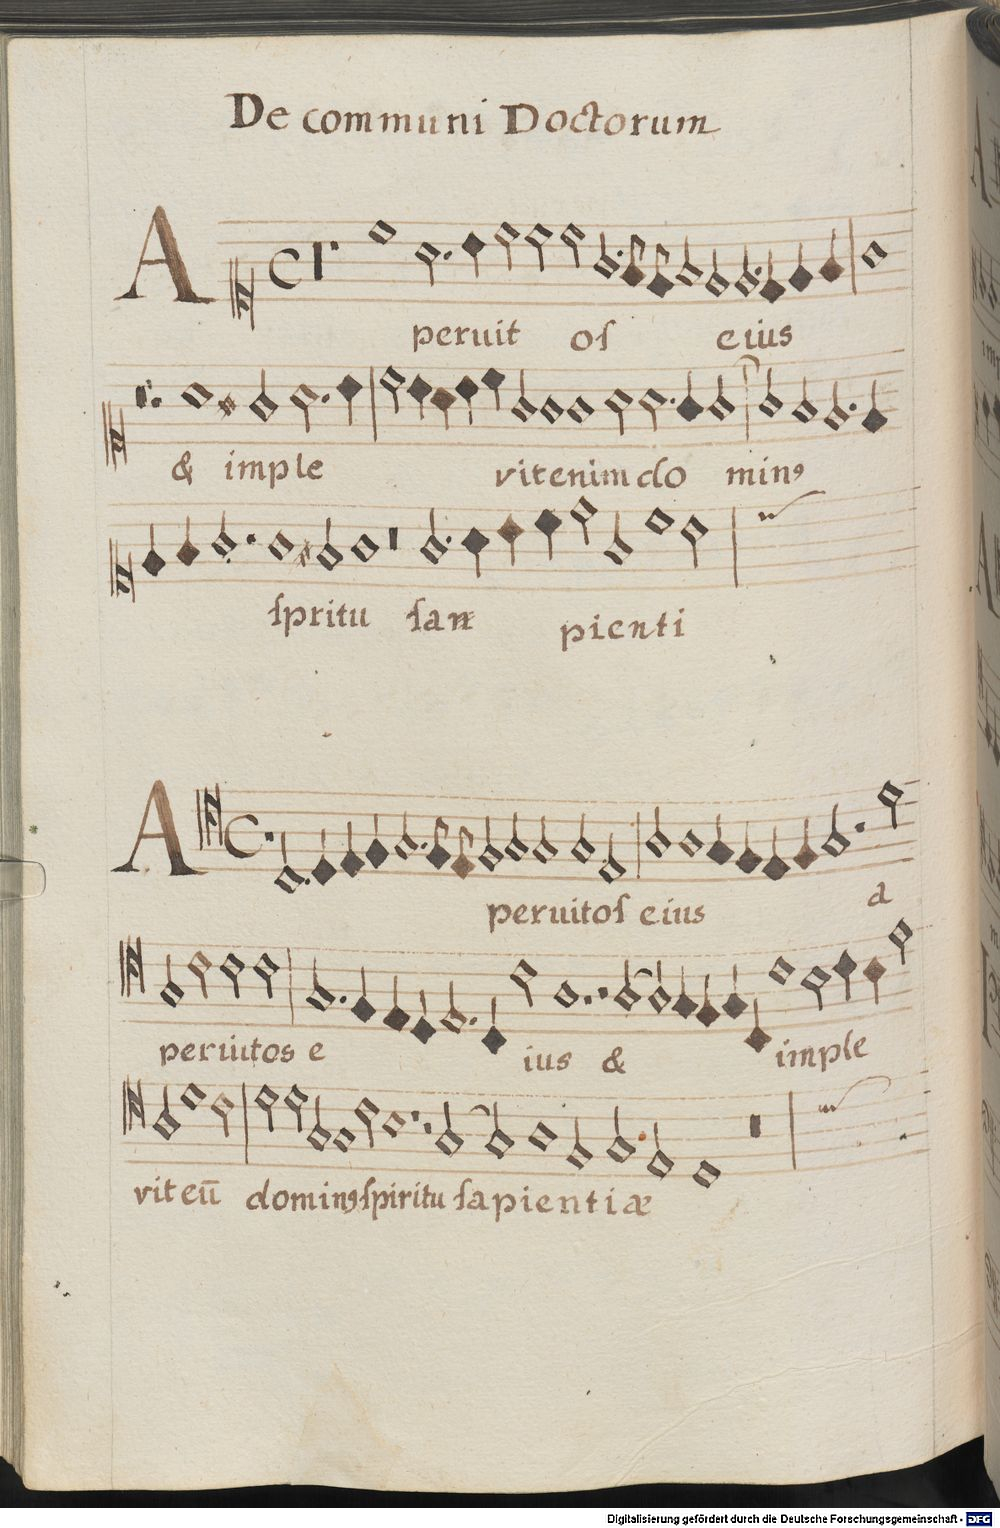 De communi Doctorum
A
peruit oſ eius
& imple vitenim do minꝰ
ſpritu ſan pienti
A
peruitoſ eius a
peruitos e ius & imple
viteū dominꝰ ſpiritu ſapientiæ
Digitalisierung gefördert durch die Deutsche Forschungsgemeinschaft - DFG